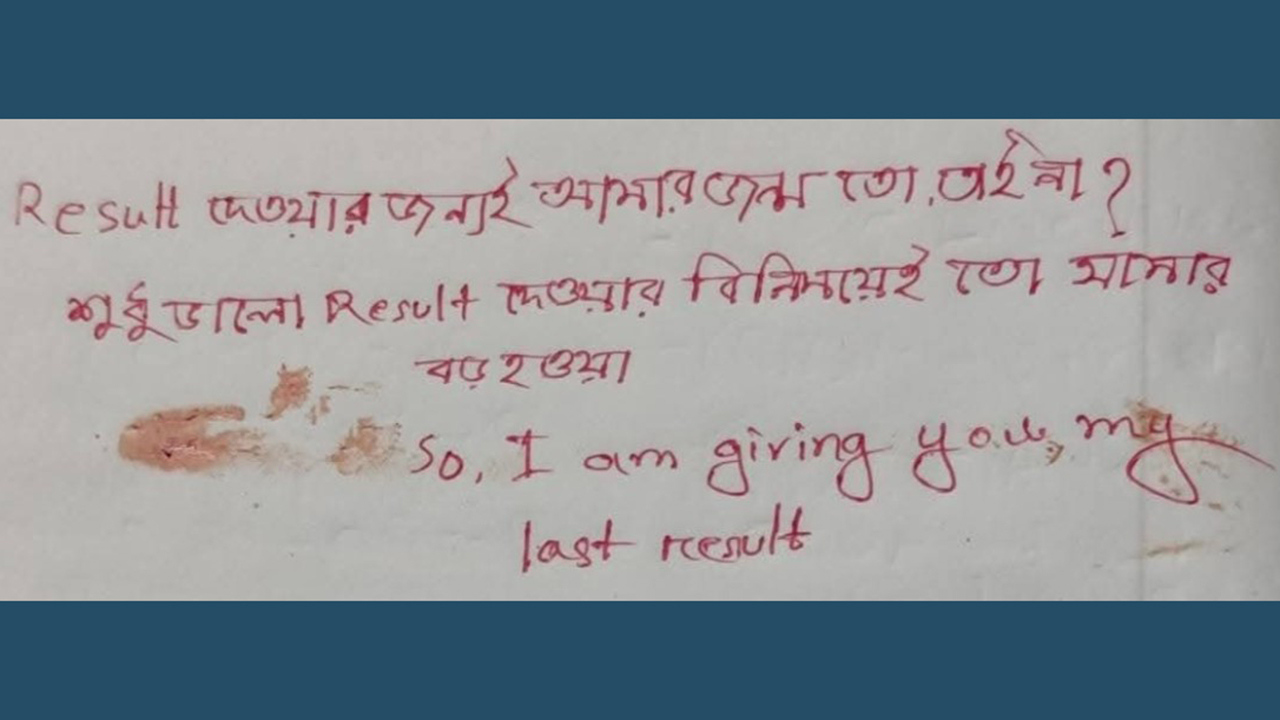 Result দেওয়ার জন্যই আমার জন্ম তো, তাই না?
শুধু ভালো Result দেওয়ার বিনিময়েই তো আমার
বড় হওয়া
So, I am giving you, my
last result